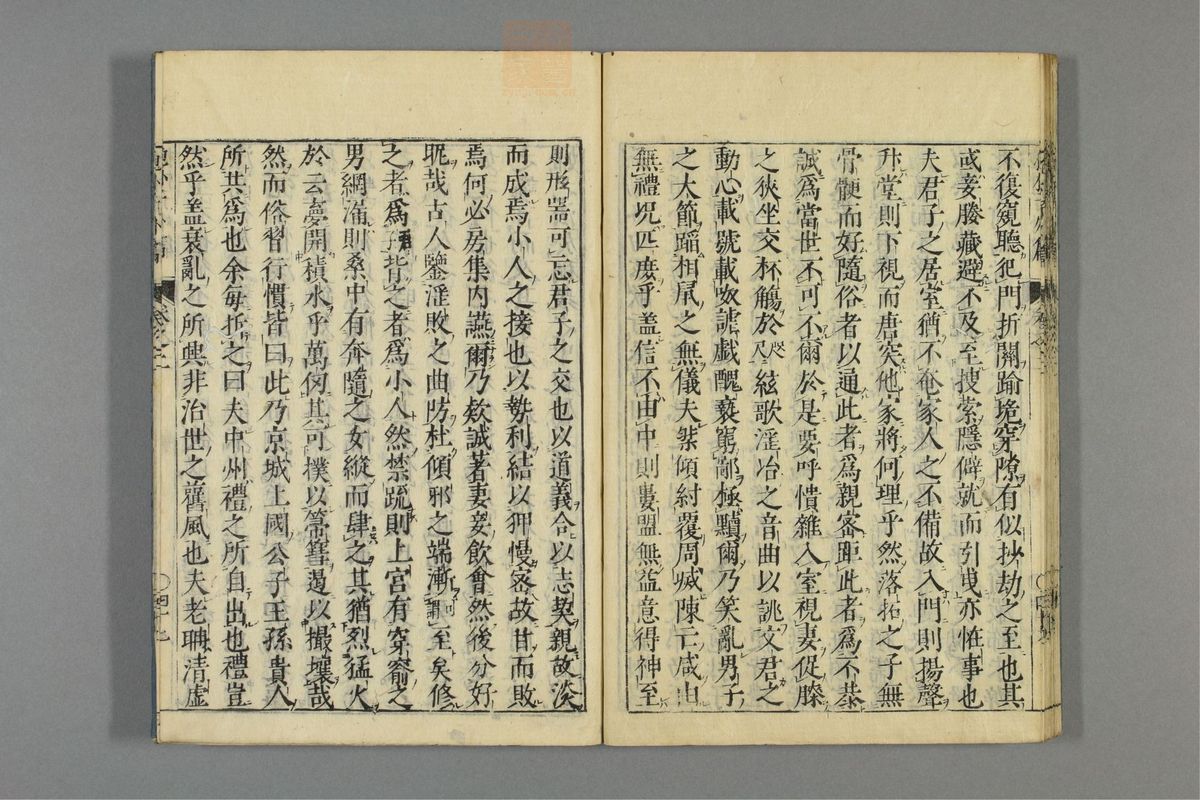 不復窺聽犯門折關踰垝穿隙有似抄劫之至也其
或妾媵藏避不及至搜索隱僻就而引曳亦怪事也
夫君子之居室猶不奄家人之不備故入門則揚聲
升堂則下視而唐突他家將何理乎然落拓之子無
骨骾而好隨俗者以通此者爲親密距此者爲不恭
誠爲當世不可不爾於是要呼憒雜入室視妻促膝
之狹坐交杯觴於咫尺絃歌淫冶之音曲以誂文君之
動心載號載呶謔戲醜褻窮鄙極黷爾乃笑亂男子
之大節蹈相鼠之無儀夫桀傾紂覆周滅陳亡咸由
無禮况匹庶乎盖信不由中則屢盟無益意得神至
則形器可忘君子之交也以道義合以志契親故淡
而成焉小人之接也以勢利結以狎慢密故甘而敗
焉何必房集内讌爾乃欵誠著妻妾飲會然後分好
昵哉古人鑒淫敗之曲防杜傾邪之端漸 至矣修
之者爲君子背之者爲小人然禁疏則上宮有穿窬之
男網漏則桑中有奔隨之女縱而肆之其猶烈猛火
於云夢開積水乎萬仞其可撲以箒篲遏以撮壤哉
然而俗習行慣皆曰此乃京城上國公子王孫貴人
所共爲也余每折之曰夫中州禮之所自出也禮豈
然乎盖衰亂之所興非治世之舊風也夫老聃清虛